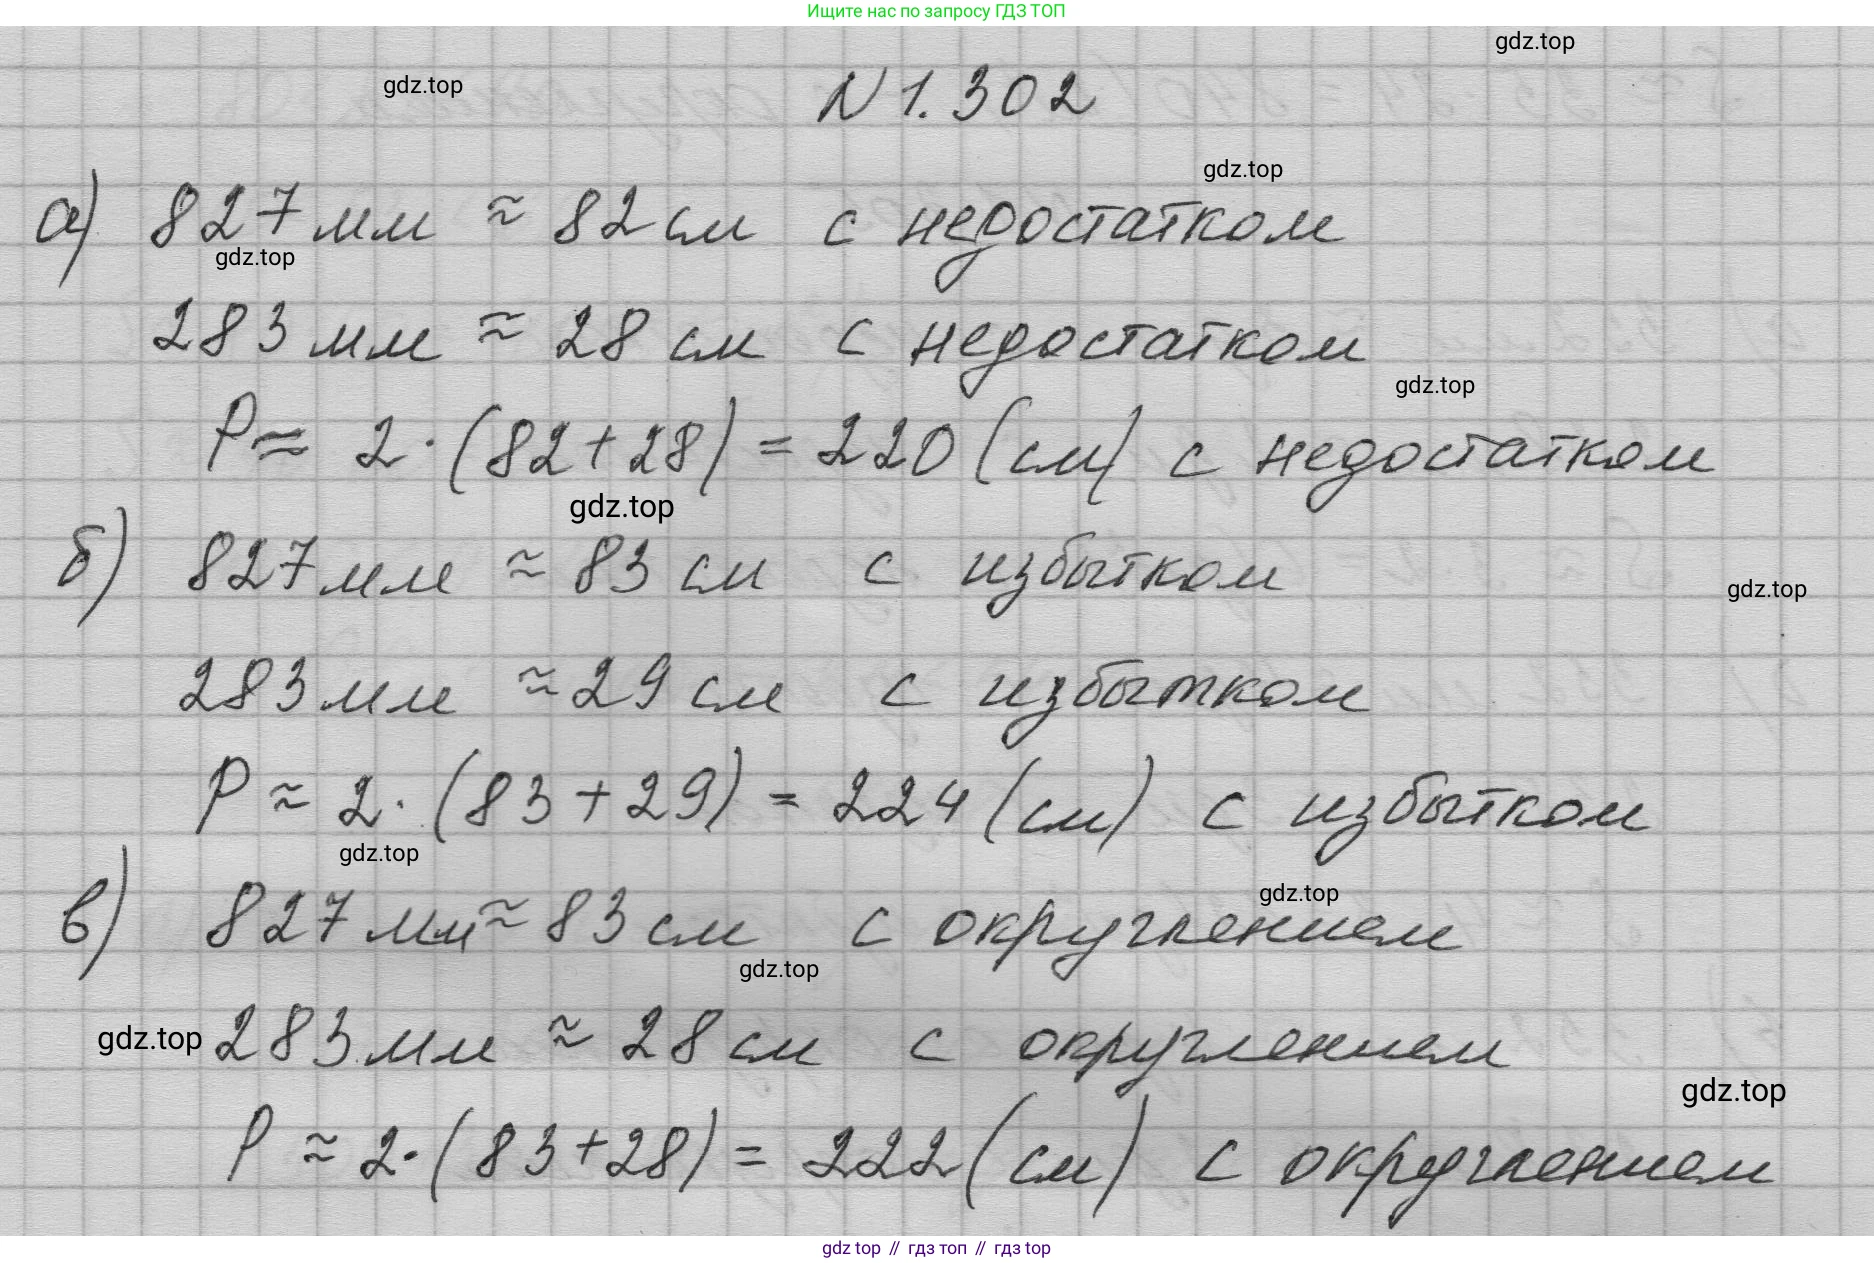 Ищите нас по запросу ГДЗ ТОП
gdz.top
gdz.top
N 1.302
gdz.top
а) 827 мм ≈ 82 см с недостатком
gdz.top
283 мм ≈ 28 см с недостатком
gdz.top
P ≈ 2·(82+28) = 220 (см) с недостатком
gdz.top
б) 827 мм ≈ 83 см с избытком
gdz.top
283 мм ≈ 29 см с избытком
P ≈ 2·(83+29) = 224 (см) с избытком
gdz.top
gdz.top
в) 827 мм ≈ 83 см с округлением
gdz.top
gdz.top
283 мм ≈ 28 см с округлением
gdz.top
P ≈ 2·(83+28) = 222 (см) с округлением
gdz top // гдз топ // гдз top